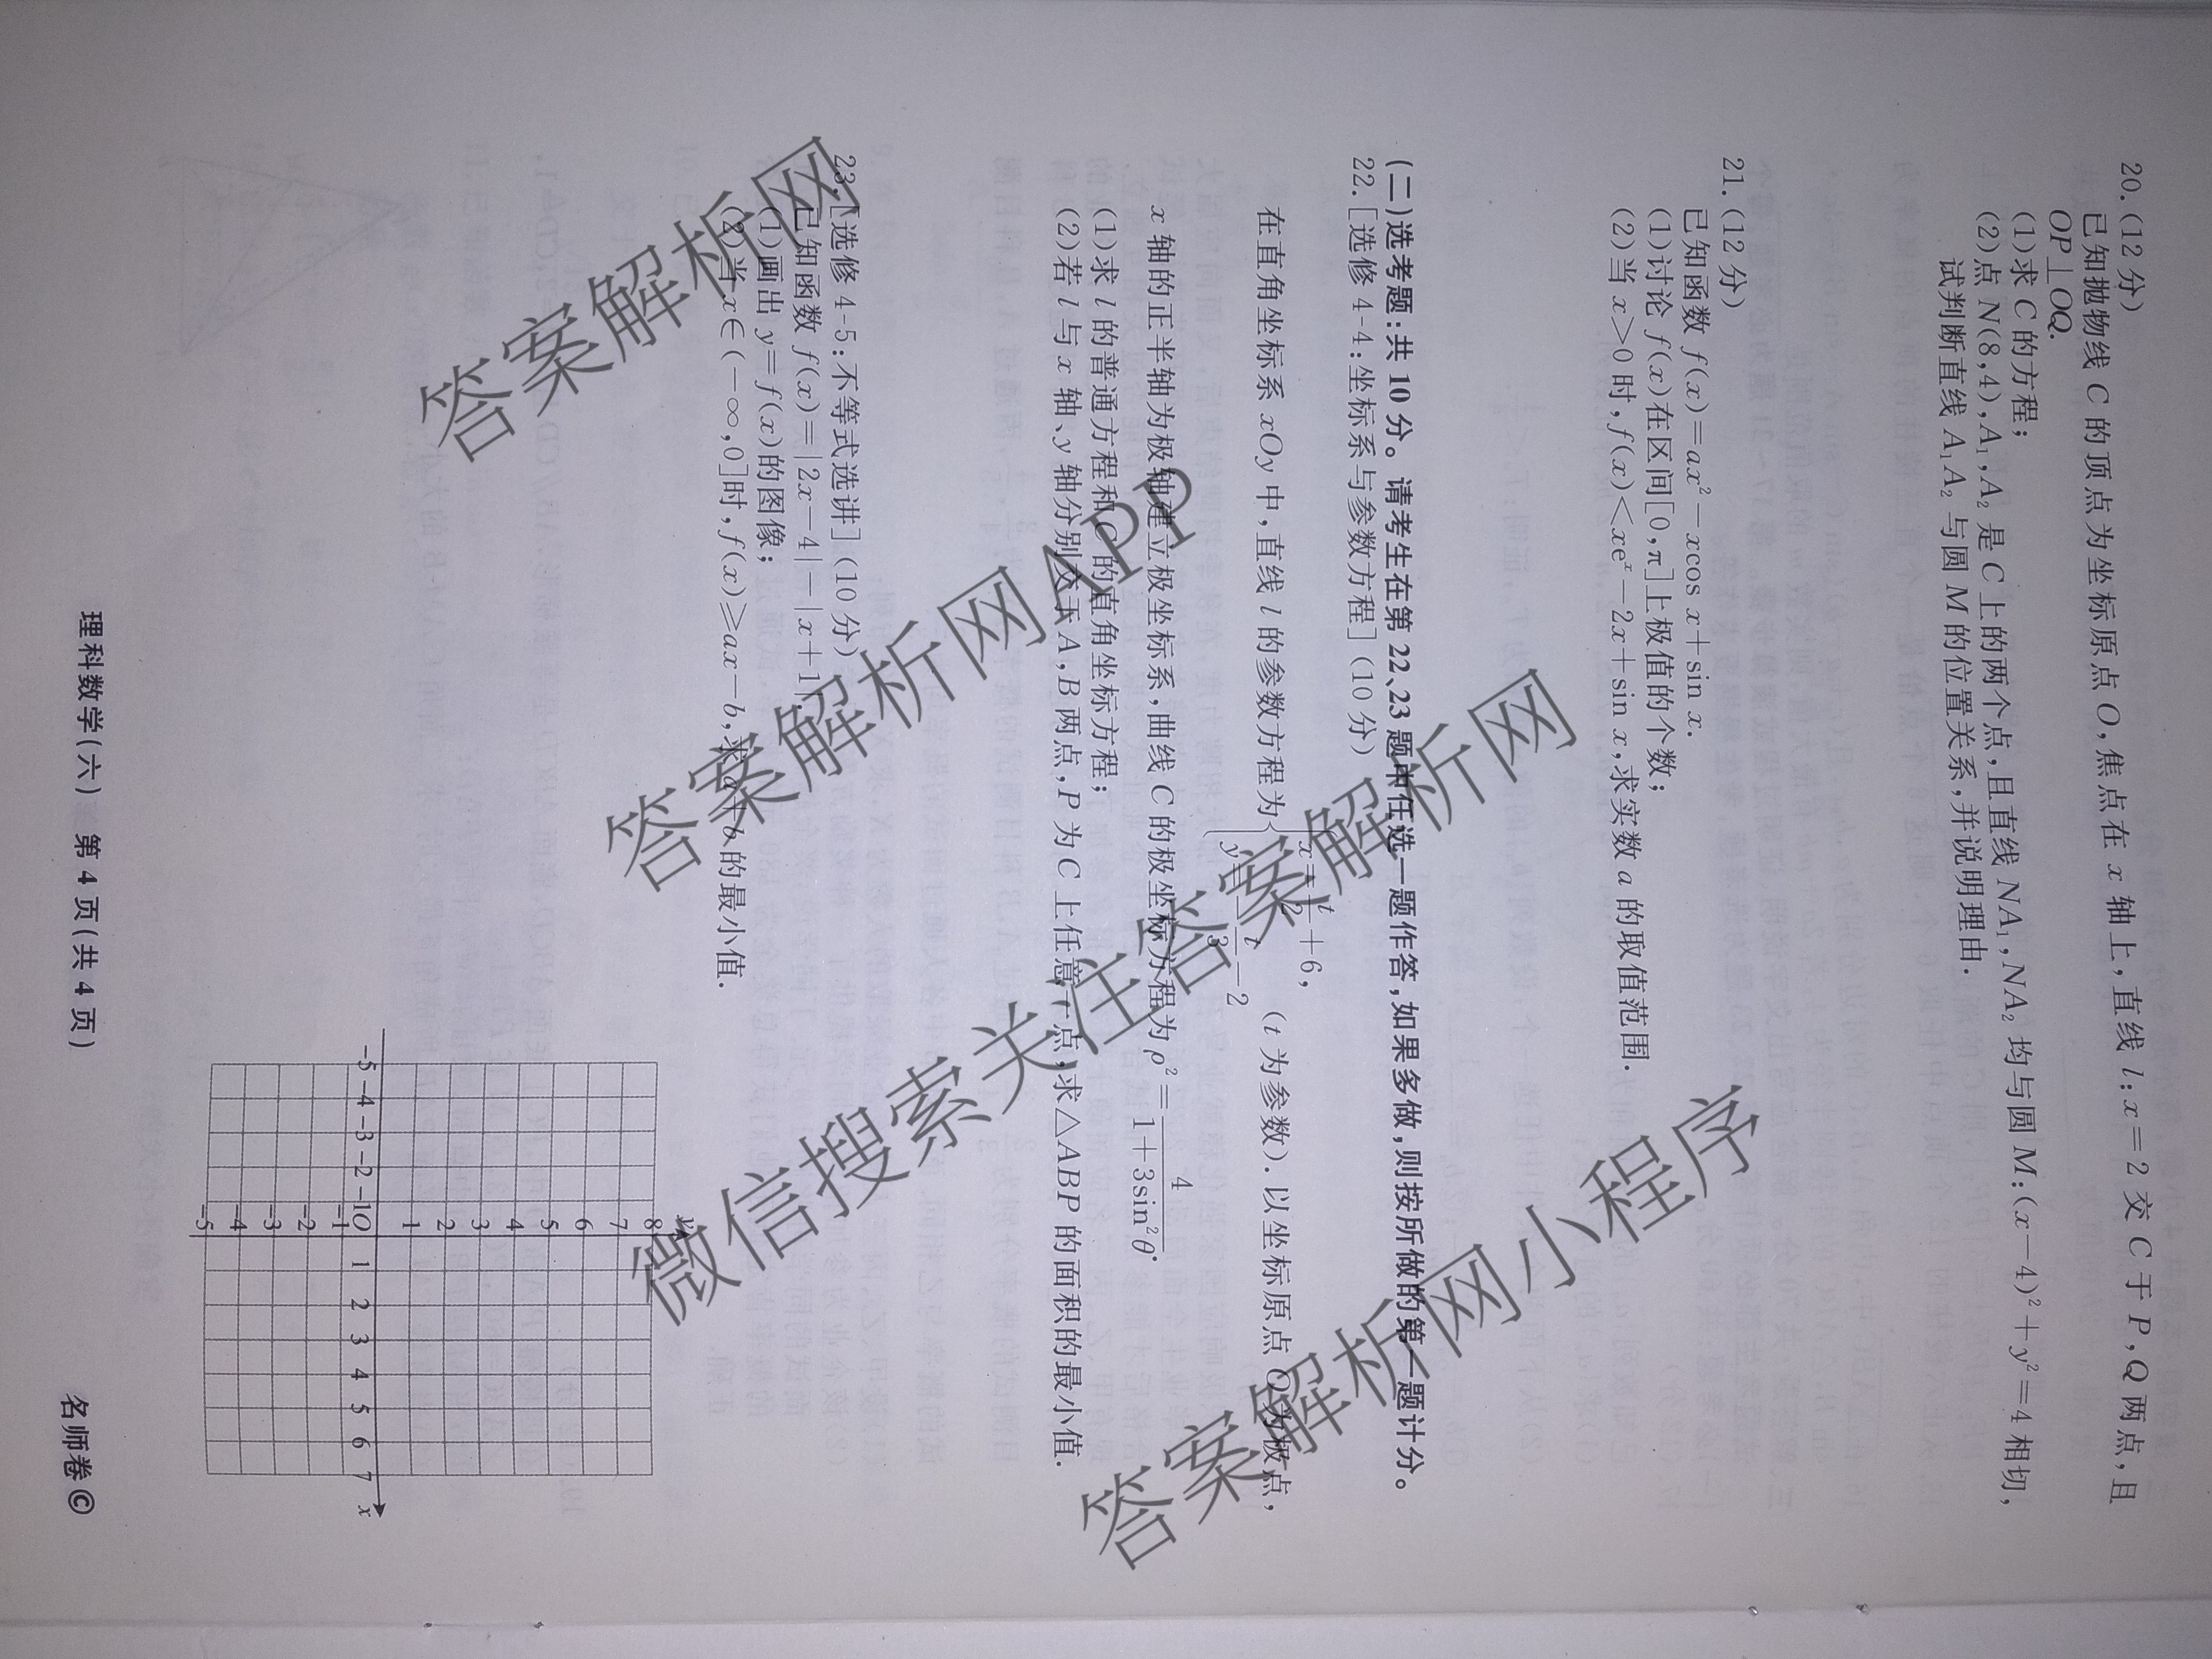 20.(12分)
已知抛物线C的顶点为坐标原点O,焦点在x轴上,直线l:x=2交C于P,Q两点,且
OP⊥OQ.
(1)求C的方程;
(2)点N(8,4),A₁,A₂是C上的两个点,且直线NA₁,NA₂均与圆M:(x-4)²+y²=4相切,
试判断直线A₁A₂与圆M的位置关系,并说明理由.
21.(12分)
已知函数f(x)=ax²-xcos x+sin x.
(1)讨论f(x)在区间[0,π]上极值的个数;
(2)当x>0时,f(x)<xeˣ-2x+sin x,求实数a的取值范围.
(二)选考题:共10分。请考生在第22、23题中任选一题作答,如果多做,则按所做的第一题计分。
22.[选修4-4:坐标系与参数方程](10分)
x=t/2+6,
在直角坐标系xOy中,直线l的参数方程为{ (t为参数).以坐标原点O为极点,
y= t/3-2
x轴的正半轴为极轴建立极坐标系,曲线C的极坐标方程为ρ²=4/(1+3sin²θ).
(1)求l的普通方程和C的直角坐标方程;
(2)若l与x轴、y轴分别交于A,B两点,P为C上任意一点,求△ABP的面积的最小值.
23.[选修4-5:不等式选讲](10分)
已知函数f(x)=|2x-4|-|x+1|
(1)画出y=f(x)的图像;
(2)当x∈(-∞,0]时,f(x)≥ax-b,求a+b的最小值.
y
8
7
6
5
4
3
2
1
-5 -4 -3 -2 -1 O 1 2 3 4 5 6 7 x
-1
-2
-3
-4
-5
理科数学(六) 第4页(共4页)
名师卷©
答案解析网
答案解析网APP
微信搜索关注答案解析网
答案解析网小程序